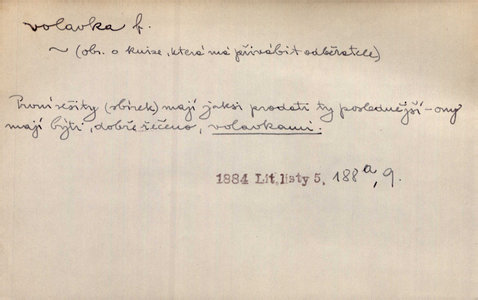 volavka f.
~ (obr. o knize, která má přivábit odběratele)
První sešity (sbírek) mají jaksi prodati ty poslednější – ony
mají býti, dobře řečeno, volavkami.
1884 Lit. listy 5, 188a, 9.